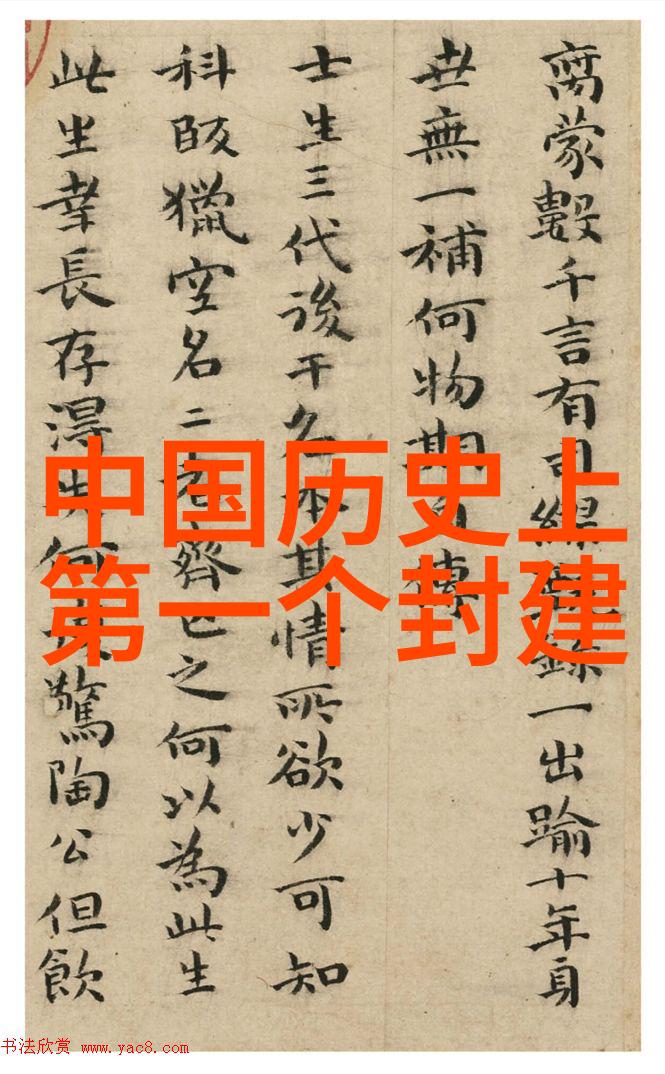 中国历史上
第一个封建
蒙數千言有司錄一出踰十年身
世無一補何物期傳
士生三代後干名本其情所欲少可知
科獵空名二者齊亡之何以為此生
此生幸長存得失何驚陶公但飲
书法欣赏 www.yac8.com